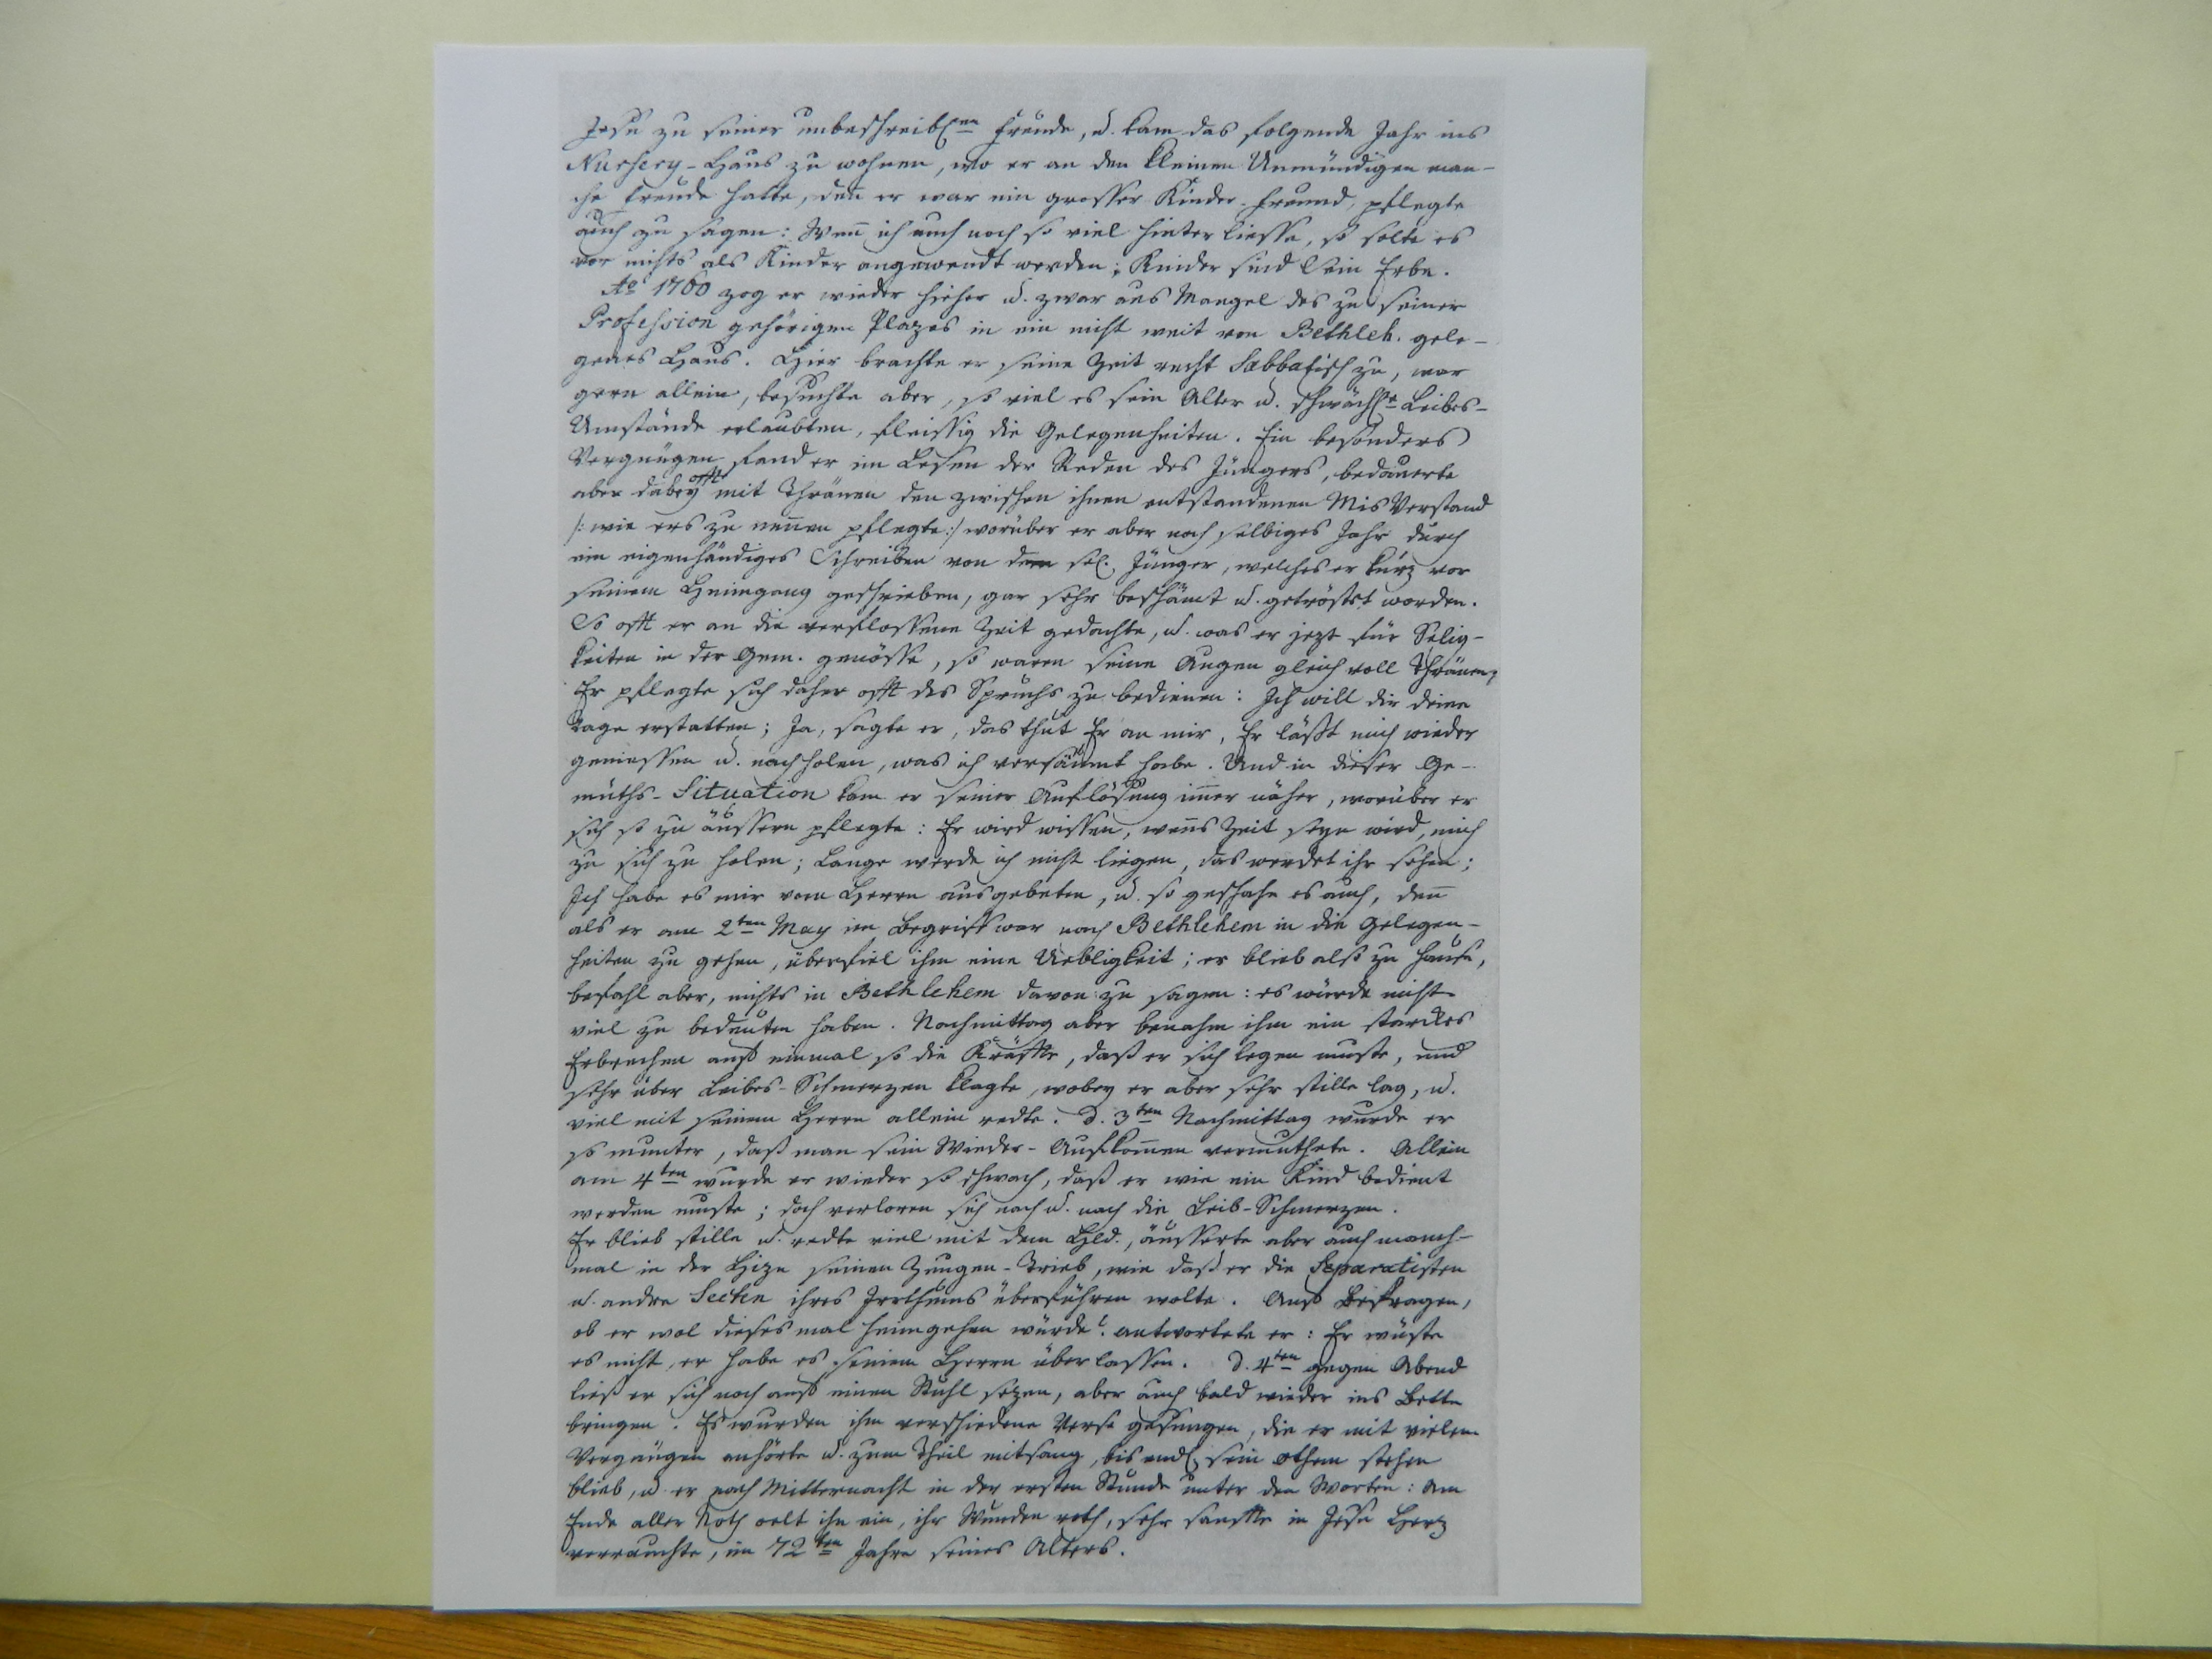 Jesu zu seiner unbeschreibl(en) Freude, u. kam das folgende Jahr ins
Nursery-Haus zu wohnen, wo er an den kleinen Unmündigen man-
che Freude hatte, den̄ er war ein grosser Kinder-Freund, pflegte
auch zu sagen: Wen̄ ich auch noch so viel hinterliesse, so solte es
vor nichts als Kinder angewendt werden; Kinder sind Sein Erbe.
Aō 1760 zog er wieder hieher u. zwar aus Mangel des zu seiner
Profession gehörigen Plazes in ein nicht weit von Bethleh. gele-
genes Haus. Hier brachte er seine Zeit recht Sabbatisch zu, war
gern allein, besuchte aber, so viel es sein Alter u. schwächl. Leibes-
Umstände erlaubten, fleissig die Gelegenheiten. Ein besonders
Vergnügen fand er im Lesen der Reden des Jüngers, bedauerte
aber dabey offt mit Thränen den zwischen ihnen entstandenen MisVerstand
/: wie ers zu nen̄en pflegte :/ worüber er aber noch selbiges Jahr durch
ein eigenhändiges Schreiben von dem sel. Jünger, welches er kurz vor
seinem Heimgang geschrieben, gar sehr beschämt u. getröstet worden.
So offt er an die verflossene Zeit gedachte, u. was er jezt für Selig-
keiten in der Gem. genösse, so waren seine Augen gleich voll Thränen,
Er pflegte sich daher offt des Spruchs zu bedienen: Ich will dir deine
Tage erstatten; Ja, sagte er, das thut Er an mir, Er läßt mich wieder
geniessen u. nachholen, was ich versäumt habe. Und in dieser Ge-
müths-Situation kam er seiner Auflösung im̄er näher, worüber er
sich so zu äussern pflegte: Er wird wissen, wen̄s Zeit seyn wird, mich
zu sich zu holen; Lange werde ich nicht liegen, das werdet ihr sehen;
Ich habe es mir vom Herrn ausgebeten, u. so geschahe es auch, den̄
als er am 2ten May im Begriff war nach Bethlehem in die Gelegen-
heiten zu gehen, überfiel ihm eine Uebligkeit; er blieb also zu Hause,
befahl aber, nichts in Bethlehem davon zu sagen: es würde nicht
viel zu bedeuten haben. Nachmittag aber benahm ihm ein starckes
Erbrechen auf einmal so die Kräffte, daß er sich legen muste, und
sehr über Leibes-Schmerzen klagte, wobey er aber sehr stille lag, u.
viel mit seinem Herrn allein redte. d. 3ten Nachmittag wurde er
so munter, daß man sein Wieder-Aufkom̄en vermuthete. Allein
am 4ten wurde er wieder so schwach, daß er wie ein Kind bedient
werden muste; doch verloren sich nach u. nach die Leib-Schmerzen.
Er blieb stille u. redte viel mit dem Hld., äusserte aber auch manch-
mal in der Hize seinen Zeugen-Trieb, wie daß er die Separatisten
u. andre Secten ihres Irrthums überführen wolte. Auf Befragen,
ob er wol dieses mal heimgehen würde? antwortete er: Er wüste
es nicht, er habe es seinem Herrn überlassen. d. 4ten gegen Abend
ließ er sich noch auf einen Stuhl sezen, aber auch bald wieder ins Bette
bringen. Es wurden ihm verschiedene Verse gesungen, die er mit vielem
Vergnügen anhörte u. zum Theil mitsang, bis endl. sein Othem stehen
blieb, u. er nach Mitternacht in der ersten Stunde unter den Worten: Am
Ende aller Noth oelt ihn ein, ihr Wunden roth, sehr sanffte in Jesu Herz
verrauchte, im 72ten Jahre seines Alters.